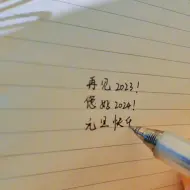 再见2023！
你好2024！
元旦快乐